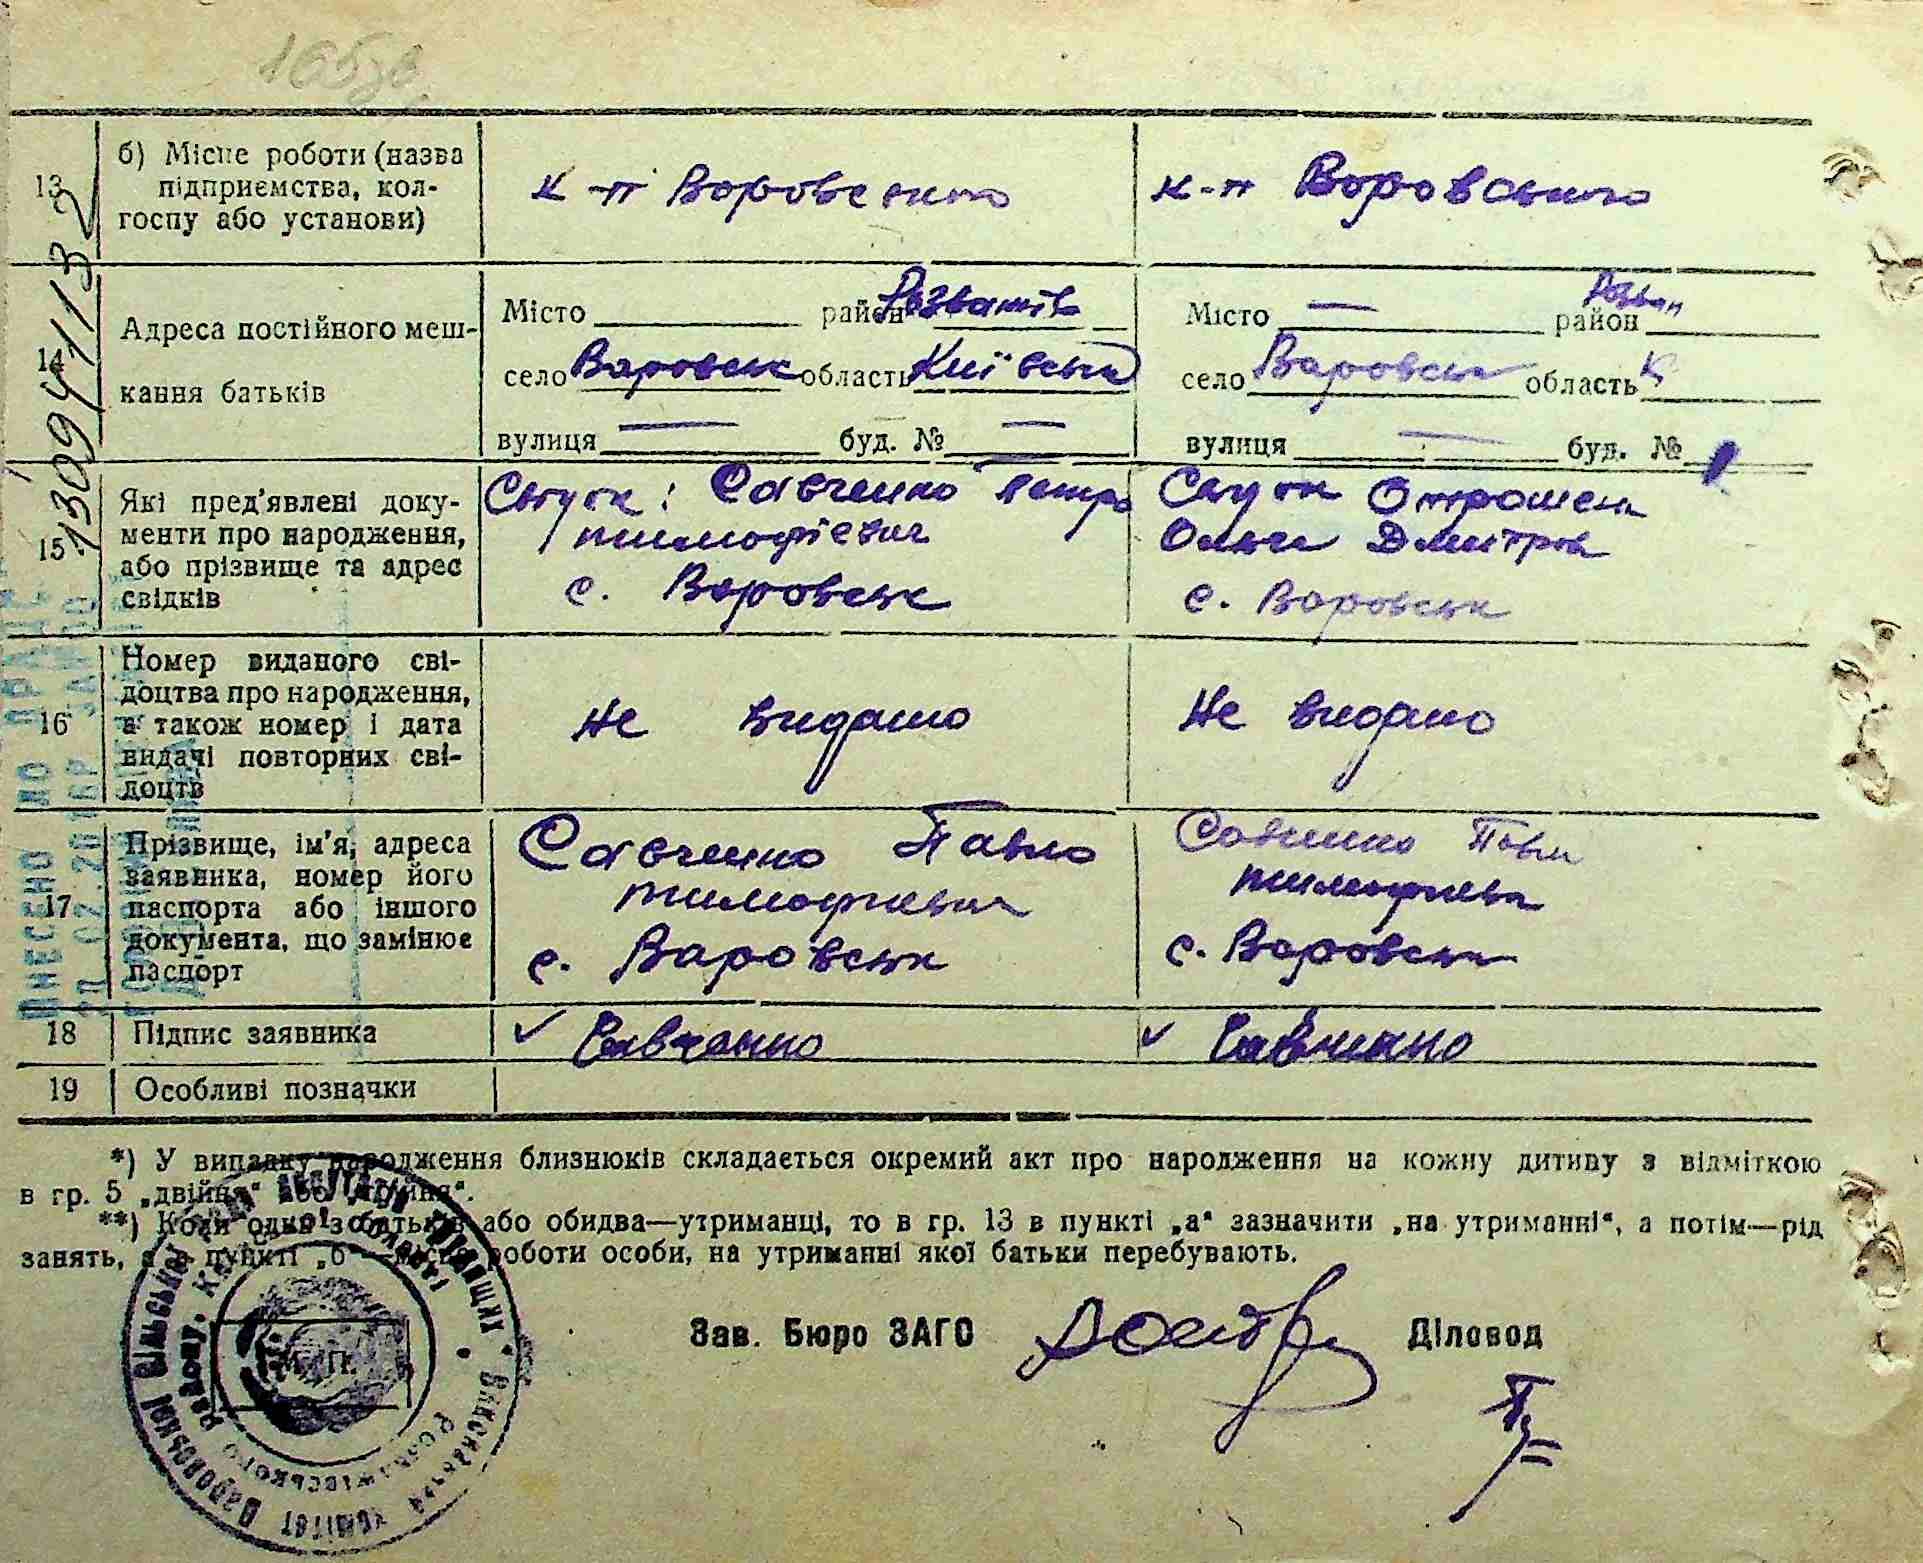 165зв.
13
б) Місце роботи (назва
підприємства, кол-
госпу або установи)
к-п Воровського
к-п Воровського
14
Адреса постійного меш-
кання батьків
Місто район Розважів
село Варовськ область Київська
вулиця — буд. № —
Місто — район Розваж
село Варовськ область К
вулиця — буд. №
15
Які пред'явлені доку-
менти про народження,
або прізвище та адрес
свідків
Савченко Петро
тимофієвич
с. Варовськ
Ольги Дмитров
с. Варовськ
16
Номер виданого сві-
доцтва про народження,
а також номер і дата
видачі повторних сві-
доцтв
Не видано
Не видано
17
Прізвище, ім'я, адреса
заявника, номер його
паспорта або іншого
документа, що замінює
паспорт
Савченко Павло
тимофиевич
с. Варовськ
Савченко Павло
тимофиев
с. Варовськ
18
Підпис заявника
✓ Савченко
✓ Савченко
19
Особливі позначки
13094113 2
ВНЕСЕНО ДО
*) У випадку народження близнюків складається окремий акт про народження на кожну дитину з відміткою
в гр. 5 „двійня“ або „трійня“.
**) Коли один з батьків або обидва—утриманці, то в гр. 13 в пункті „а“ зазначити „на утриманні“, а потім—рід
занять, а в пункті „б“—місце роботи особи, на утриманні якої батьки перебувають.
Зав. Бюро ЗАГС
Діловод
М. П.